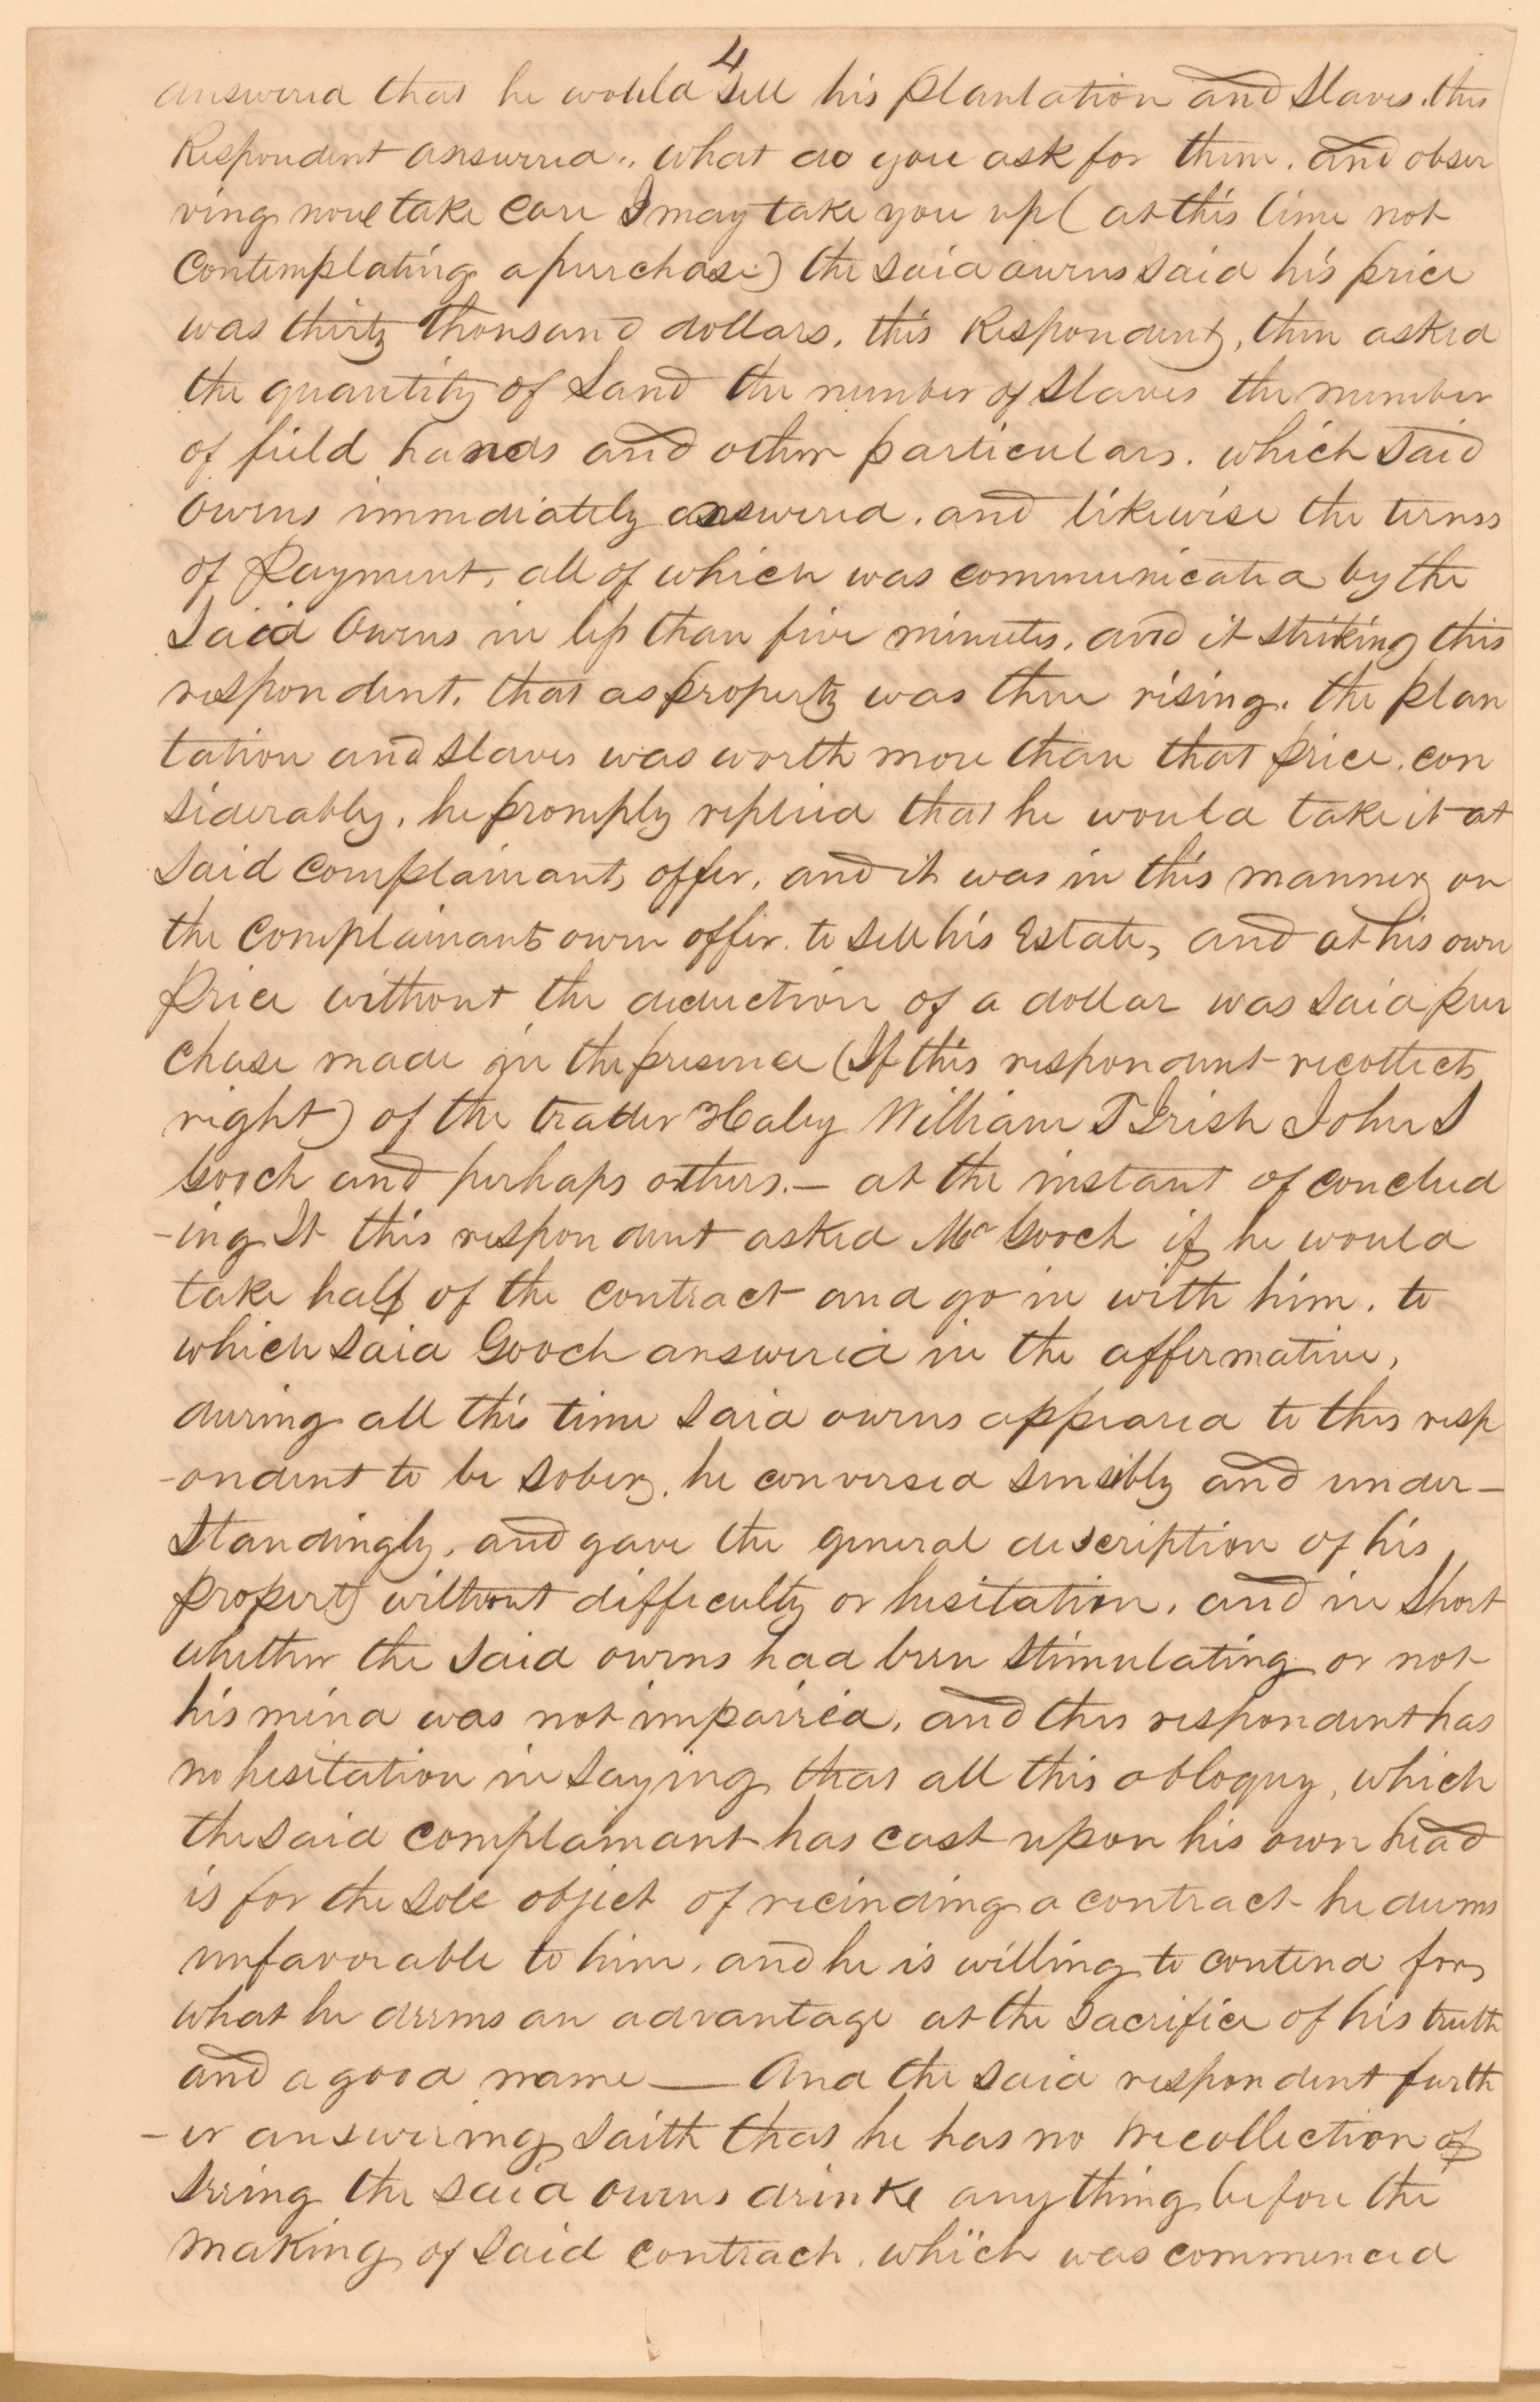 4
answered that he would sell his plantation and Slaves. this
Respondent answered., what do you ask for them. and obser
ving now take care I may take you up (at this time not
Contemplating a purchase) the said owens said his price
was thirty thousand dollars. this Respondent, then asked
the quantity of Land the number of Slaves the number
of field hands and other particulars. which said
Owens immediately answered. and likewise the terms
of Payment, all of which was communicated by the
Said Owens in less than five minutes, and it striking this
respondent. that as property was then rising. the plan
tation and slaves was worth more than that price. con
siderably. he promply replied that he would take it at
said complainants offer. and it was in this manner on
the Complainants own offer. to sell his Estate, and at his own
price without the deduction of a dollar was said pur
chase made in the presence (If this respondent recollects
right) of the trader Haley William T Irish John S
Gooch and perhaps others.— at the instant of conclud
-ing It this respondent asked Mr Gooch if he would
take half of the contract and go in with him. to
which said Gooch answered in the affermative,
during all this time said owens appeared to this resp
-ondent to be sober. he conversed sensibly and under-
standingly. and gave the general description of his
property without difficulty or hesitation. and in short
whether the said owens had been stimulating or not
his mind was not impaired. and this respondent has
no hesitation in saying that all this obloquy, which
the said complainant has cast upon his own head
is for the sole object of recinding a contract he deems
unfavorable to him. and he is willing to contend for
what he deems an advantage at the sacrifice of his truth
and a good name — And the said respondent furth
-er answering saith that he has no recollection of
seeing the said owens drinke any thing before the
making of said contract. which was commenced